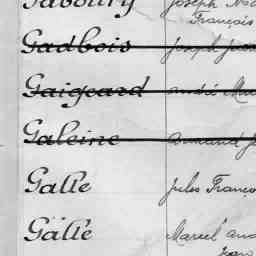 Gaboury Joseph
François
Gadbois Joseph
Gaigeard André
Galeine Armand
Galle Jules Franço
Gälle Marcel
Jean